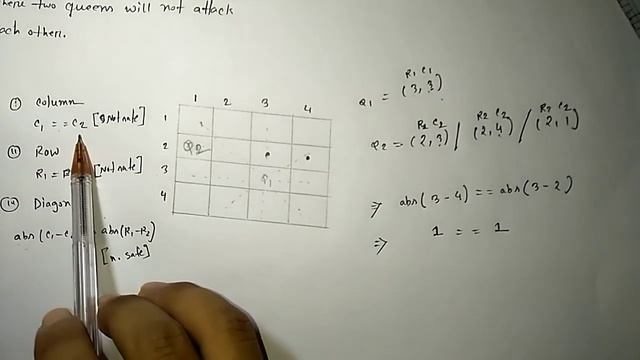 here two queens will not attack
ach others.
(i) Column
C1 == C2 [not safe]
(ii) Row
R1 = R [Not safe]
(iii) Diagon
abs(C1-C = abs(R1-R2)
[n. safe]
1 2 3 4
1
2 Q2
3 Q1
4
R1 C1
Q1 = (3, 3)
R2 C2 R2 C2 R2 C2
Q2 = (2, 3) / (2, 4) / (2, 1)
⇒ abs(3-4) == abs(3-2)
⇒ 1 == 1